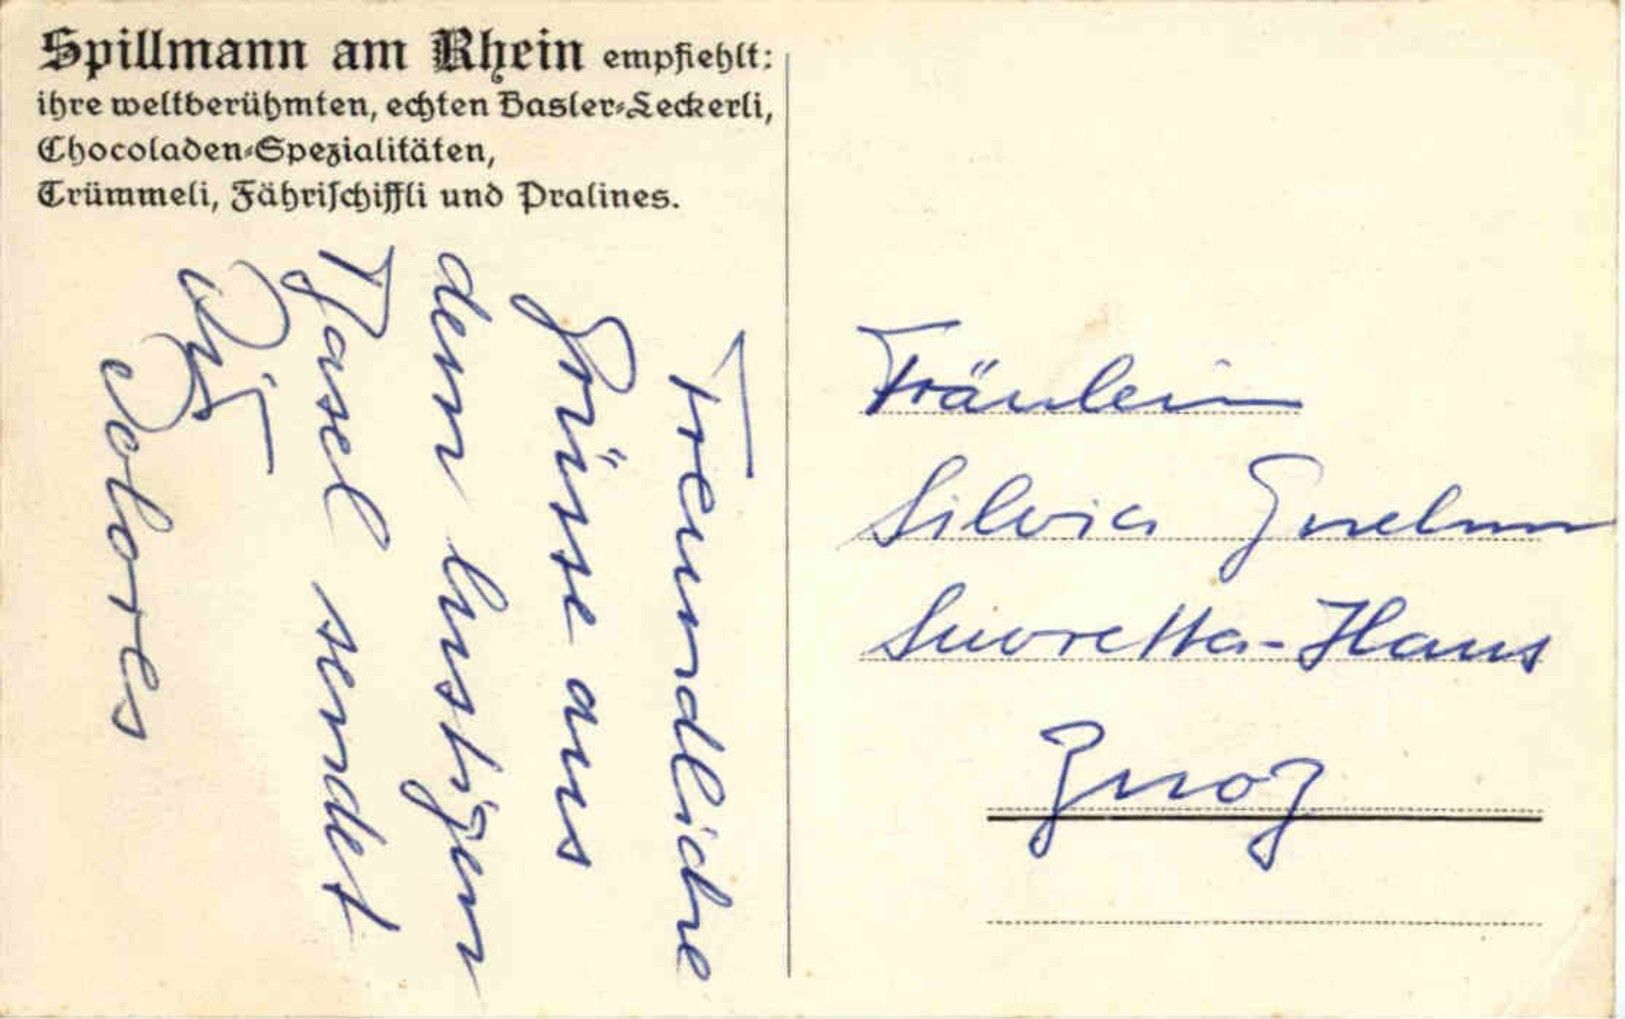 Spillmann am Rhein empfiehlt:
ihre weltberühmten, echten Basler-Leckerli,
Chocoladen-Spezialitäten,
Trümmeli, Fährischiffli und Pralines.
Freundliche
Grüsse aus
dem lustigen
Basel sendet
Dir
Dolores
Fräulein
Silvia
Suvretta-Haus
Zuoz